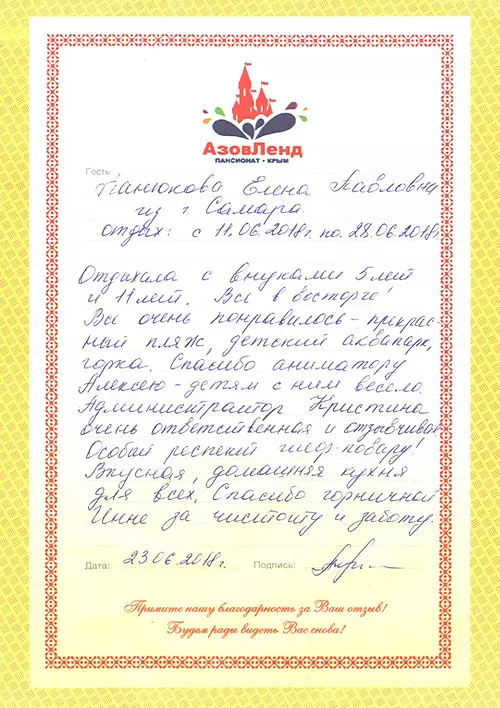 АзовЛенд
ПАНСИОНАТ • КРЫМ
Гость
Панюкова Елена Павловна
из г. Самара.
отдых: с 11.06.2018г. по 28.06.2018г.
Отдыхала с внуками 5 лет
и 11 лет. Все в восторге!
Все очень понравилось - прекрас-
ный пляж, детский аквапарк,
горка. Спасибо аниматору
Алексею - детям с ним весело.
Администратор Кристина
очень ответственная и отзывчивая
Особый респект шеф-повару!
Вкусная, домашняя кухня
для всех. Спасибо горничной
Инне за чистоту и заботу.
Дата: 23.06.2018г. Подпись:
Примите нашу благодарность за Ваш отзыв!
Будем рады видеть Вас снова!